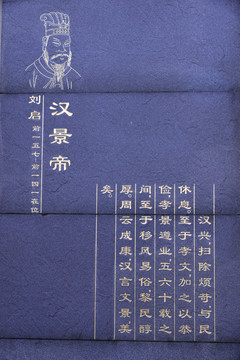 汉景帝
刘启 前一五七-前一四一在位
汉兴,扫除烦苛,与民
休息。至于孝文,加之以恭
俭,孝景遵业,五六十载之
间,至于移风易俗,黎民醇
厚。周云成康,汉言文景,美
矣。